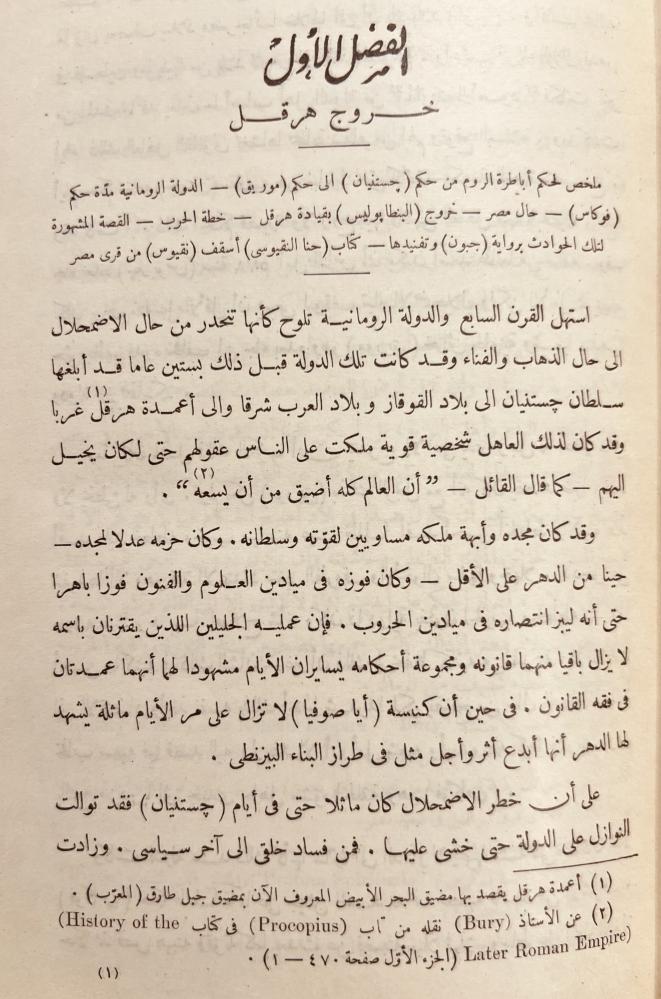 الفصل الأول
خروج هرقل
ملخص لحكم أباطرة الروم من حكم (چستنيان) الى حكم (موريق) — الدولة الرومانية مدّة حكم
(فوكاس) — حال مصر — خروج (البنطاپوليس) بقيادة هرقل — خطة الحرب — القصة المشهورة
لتلك الحوادث برواية (جبون) وتفنيدها — كتاب (حنا النقيوسى) أسقف (نقيوس) من قرى مصر
استهل القرن السابع والدولة الرومانية تلوح كأنها تنحدر من حال الاضمحلال
الى حال الذهاب والفناء وقد كانت تلك الدولة قبل ذلك بستين عاما قد أبلغها
سلطان چستنيان الى بلاد القوقاز وبلاد العرب شرقا والى أعمدة هرقل (١) غربا
وقد كان لذلك العاهل شخصية قوية ملكت على الناس عقولهم حتى لكان يخيل
اليهم — كما قال القائل — ”أن العالم كله أضيق من أن يسعه (٢)“ .
وقد كان مجده وأبهة ملكه مساويين لقوّته وسلطانه . وكان حزمه عدلا لمجده —
حينا من الدهر على الأقل — وكان فوزه فى ميادين العلوم والفنون فوزا باهرا
حتى أنه ليبز انتصاره فى ميادين الحروب . فإن عمليه الجليلين اللذين يقترنان باسمه
لا يزال باقيا منهما قانونه ومجموعة أحكامه يسايران الأيام مشهودا لهما أنهما عمدتان
فى فقه القانون . فى حين أن كنيسة (أيا صوفيا) لا تزال على مر الأيام ماثلة يشهد
لها الدهر أنها أبدع أثر وأجل مثل فى طراز البناء البيزنطى .
على أن خطر الاضمحلال كان ماثلا حتى فى أيام (چستنيان) فقد توالت
النوازل على الدولة حتى خشى عليها . فمن فساد خلقى الى آخر سياسى . وزادت
(١) أعمدة هرقل يقصد بها مضيق البحر الأبيض المعروف الآن بمضيق جبل طارق (المعرّب) .
(٢) عن الأستاذ (Bury) نقله من (Procopius) فى كتاب (History of the
Later Roman Empire) (الجزء الأوّل صفحة ٤٧٠ — ١) .
(١)